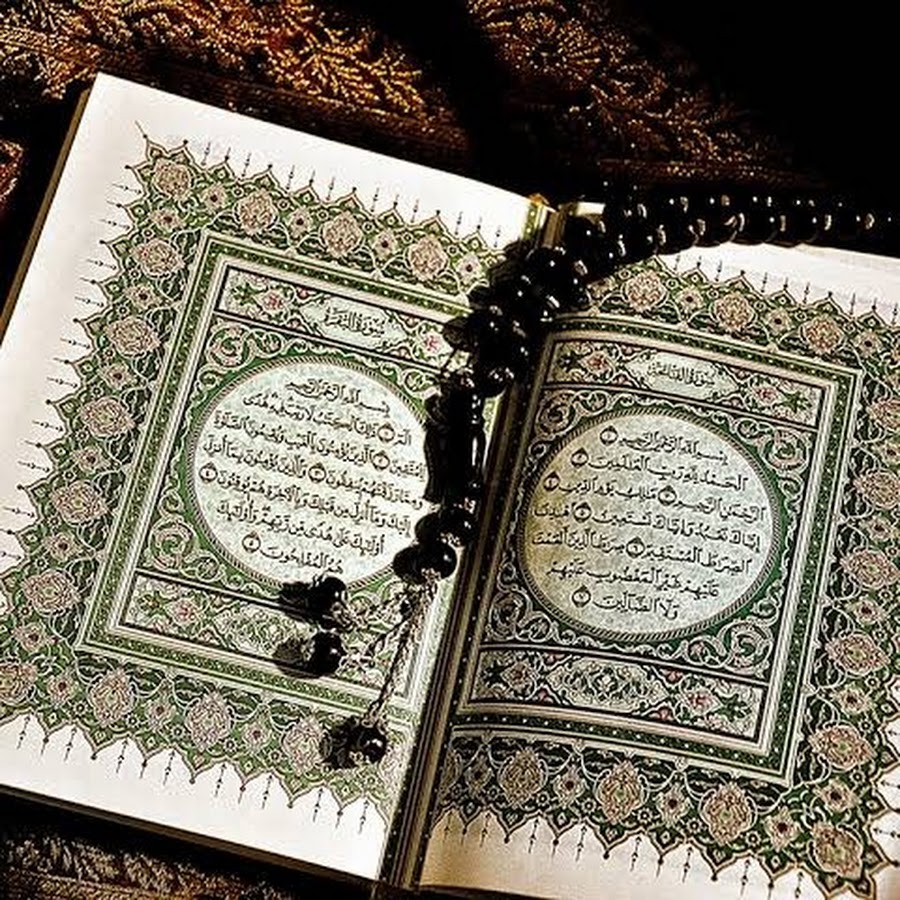 سورة الفاتحة
بسم الله الرحمن الرحيم ١
الحمد لله رب العالمين ٢
الرحمن الرحيم ٣ ملك يوم الدين ٤
إياك نعبد وإياك نستعين ٥ اهدنا
الصرط المستقيم ٦ صرط الذين أنعمت
عليهم غير المغضوب عليهم
ولا الضالين ٧
سورة البقرة
بسم الله الرحمن الرحيم
الم ١ ذلك الكتب لا ريب فيه هدى
للمتقين ٢ الذين يؤمنون بالغيب ويقيمون الصلوة
ومما رزقنهم ينفقون ٣ والذين يؤمنون بما أنزل
إليك وما أنزل من قبلك وبالآخرة هم يوقنون ٤
أولئك على هدى من ربهم وأولئك
هم المفلحون ٥